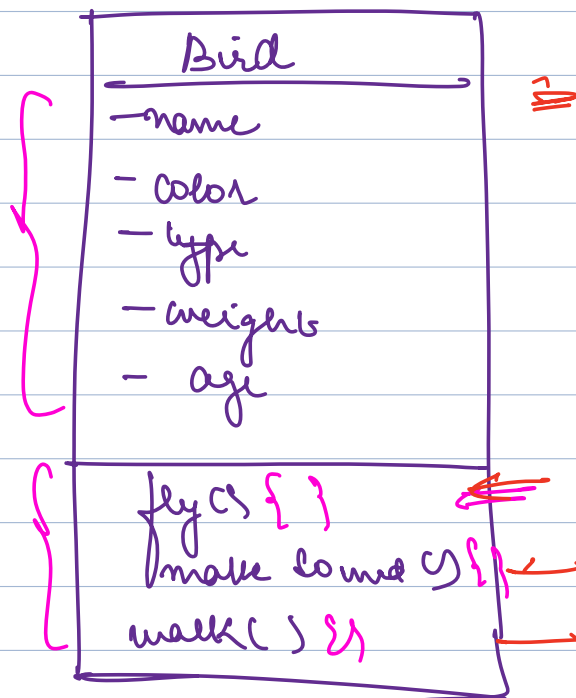 Bird
- name
- color
- type
- weight
- age
fly() { }
make sound() { }
walk() { }